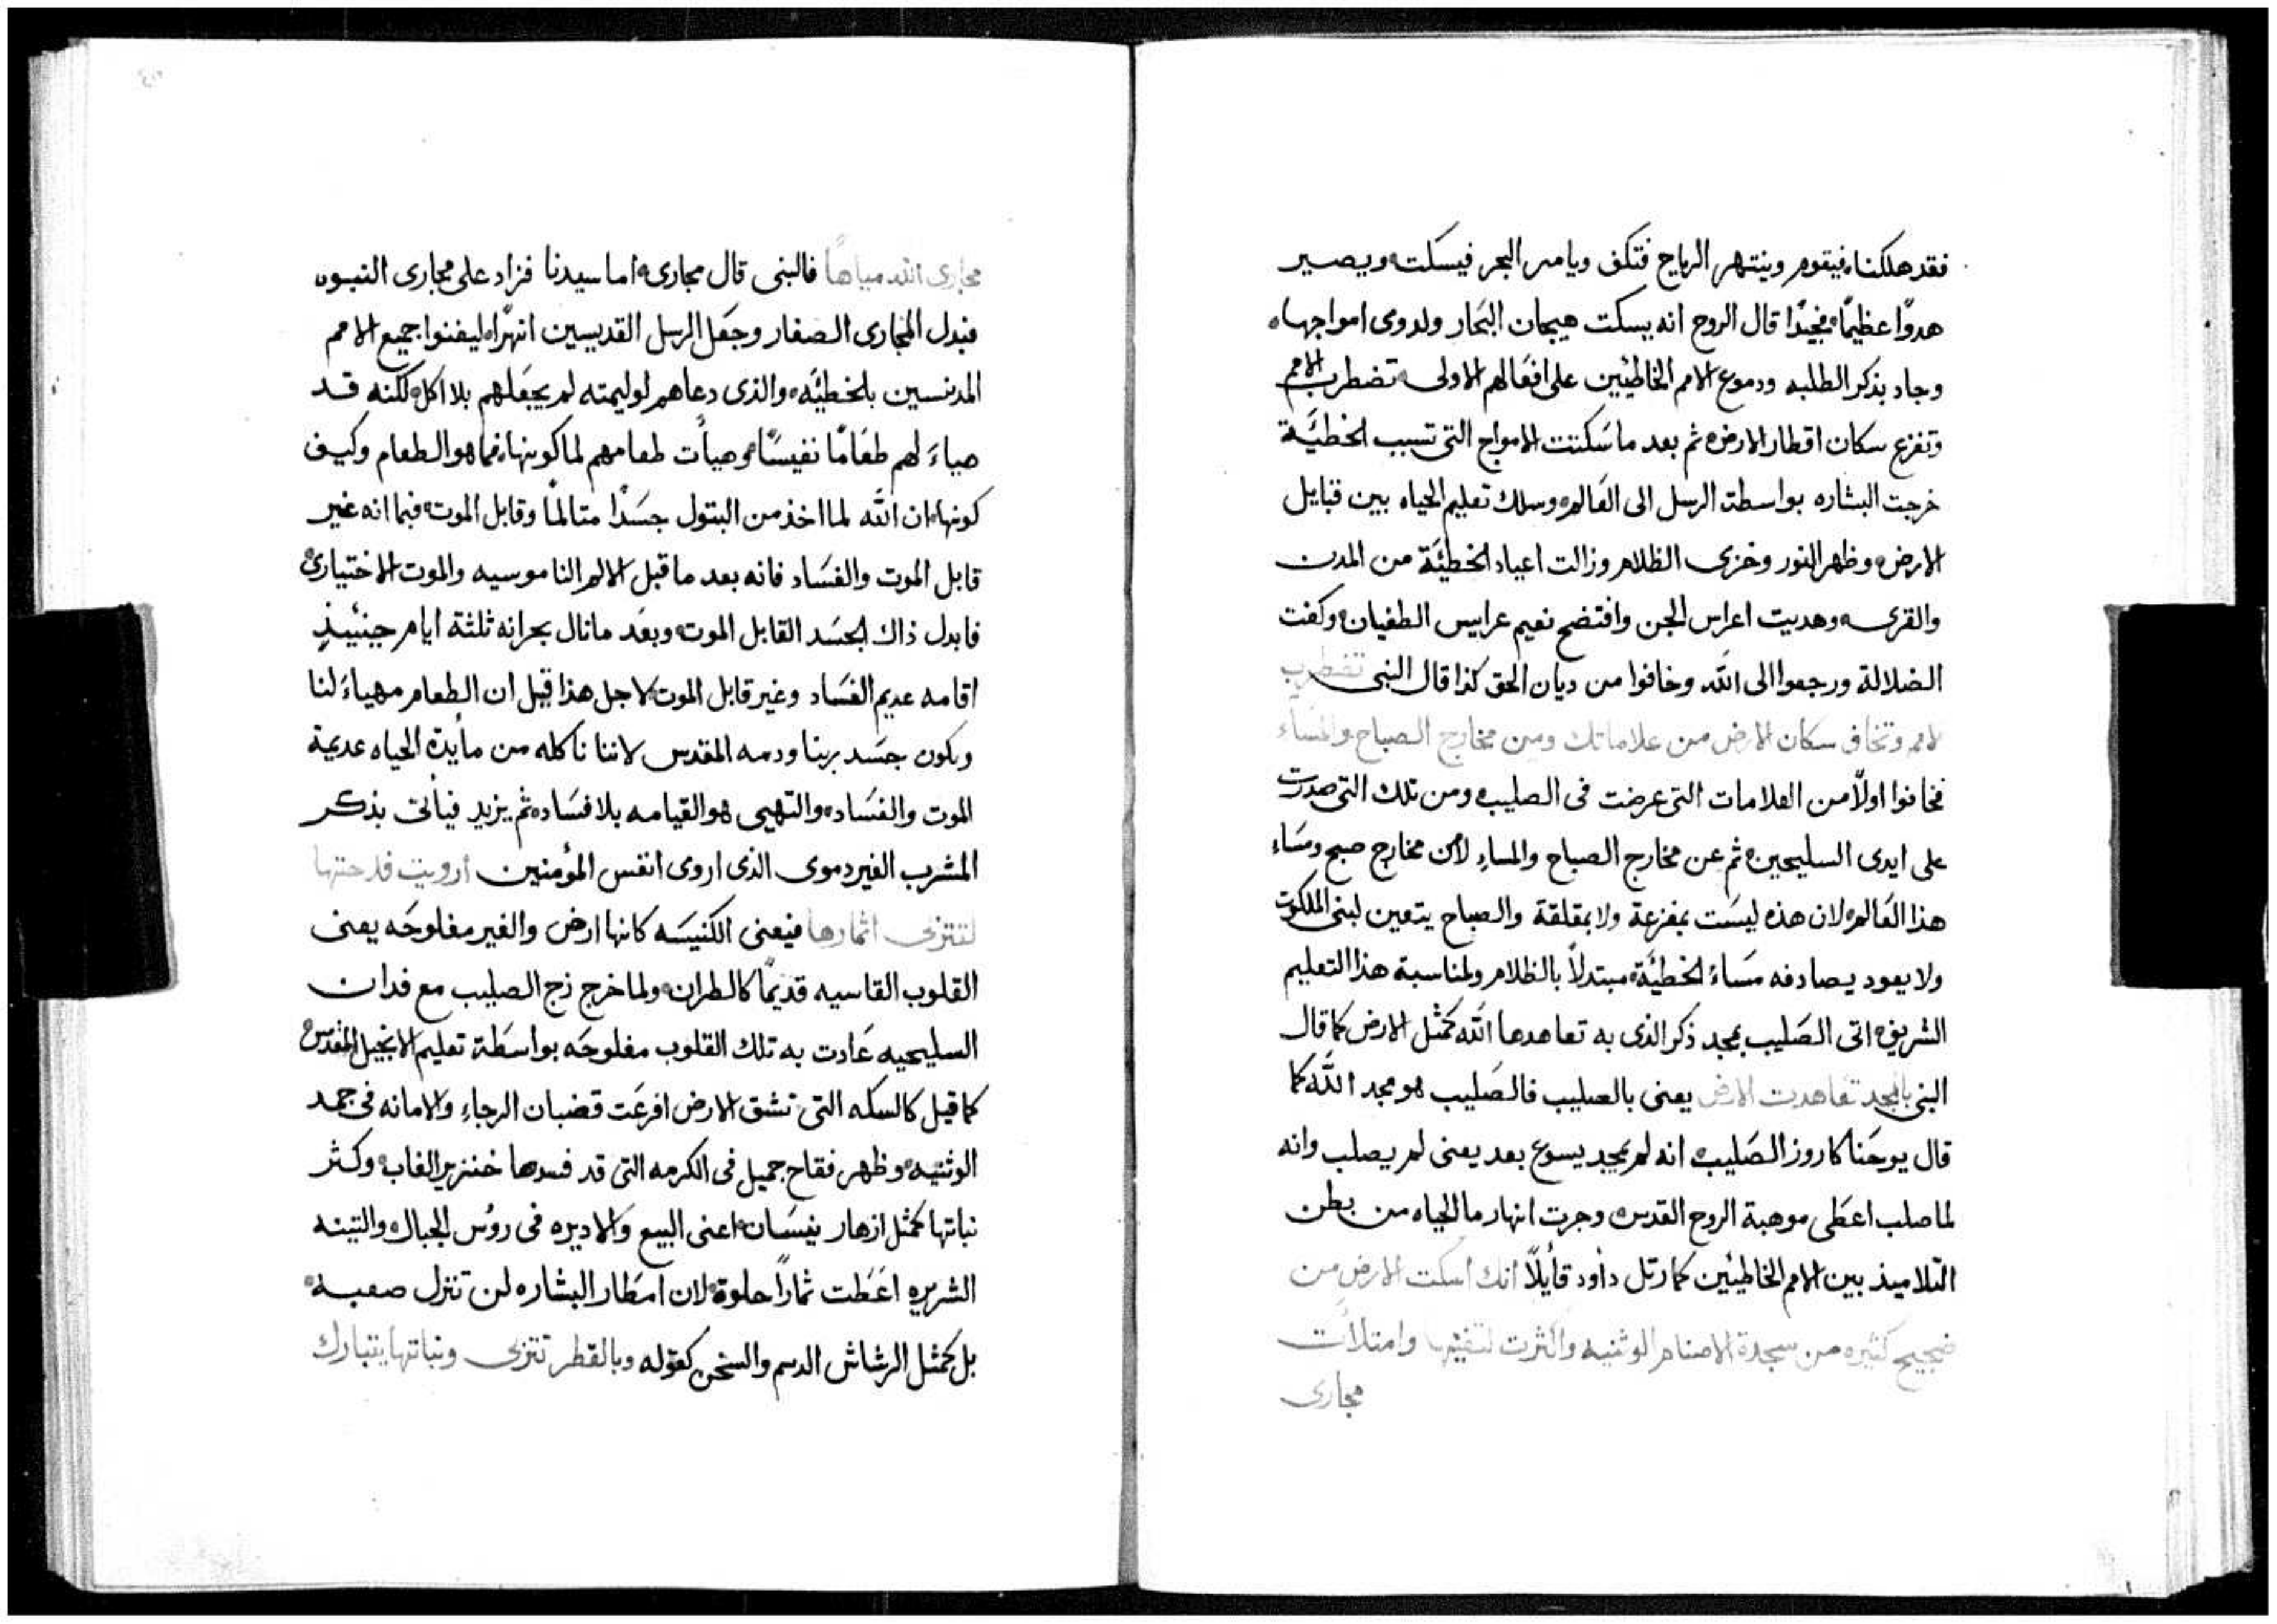 فقد هلكنا، فيقوم وينتهر الرياح فتكف ويامر البحر فيسكت، ويصير
هدوًا عظيمًا، مجيدًا قال الروح انه يسكت هيجان البحار ولدوى امواجها،
وجاد بذكر الطلبه ودموع الامم الخاطيين على افعالهم الاولى، تضطرب الامم
وتفزع سكان اقطار الارض، ثم بعد ما سكنت الامواج التى تسبب الخطيَّة
خرجت البشاره بواسطة الرسل الى العالم، وسلك تعليم الحياه بين قبايل
الارض، وظهر النور وخزى الظلام وزالت اعياد الخطيَّة من المدن
والقرى، وهديت اعراس الجن وافتضح نعيم عرايس الطغيان، وكفت
الضلالة ورجعوا الى الله وخافوا من ديان الحق كذا قال النبى تضطرب
الامم وتخاف سكان الارض من علاماتك ومن مخارج الصباح والمسَاء
فخافوا اولًا من العلامات التى عرضت فى الصليب، ومن تلك التى صدرت
على ايدى السليحين، ثم عن مخارج الصباح والمساءِ لامن مخارج صبح ومسَاء
هذا العالم، لان هذه ليسَت بمفزعة ولا بمقلقة والصباح يتعين لبنى الملكوت
ولا يعود يصادفه مسَاءُ الخطيَّة، مبتدلًا بالظلام ولمناسبة هذا التعليم
الشريف، اتى الصَليب بمجد ذكر الذى به تعاهدها الله كمثل الارض كما قال
النبى بالمجد تعاهدت الارض يعنى بالصليب فالصَليب هو مجد الله كما
قال يوحَنا كاروز الصَليب، انه لم يمجد يسوع بعد يعنى لم يصلب وانه
لما صلب اعطى موهبة الروح القدس، وجرت انهار ما الحياه من بطن
التلاميذ بين الامم الخاطيين كما رتل داود قايلًا انك اسكت الارض من
ضجيج كثيره من سجدة الاصنام الوثنيه واكثرت لتغنيها وامتلأت
مجارى
مجارى الله مياهًا فالنبى قال مجارى، اما سيدنا فزاد على مجارى النبوه
فبدل المجارى الصغار وجعَل الرسل القديسين انهرًا، ليغنوا جميع الامم
المدنسين بالخطيَّه، والذى دعاهم لوليمته لم يجعَلهم بلا اكل، لكنه قد
هياءَ لهم طعَامًا نفيسًا، وهيأت طعامهم لما كونها، فما هو الطعام وكيف
كونها، ان الله لما اخذ من البتول جسَدًا متالمًا وقابل الموت، فبما انه غير
قابل الموت والفسَاد فانه بعد ما قبل الالم الناموسيه والموت الاختيارى
فابدل ذاك الجسَد القابل الموت، وبعَد ما نال بحرانه ثلثة ايام حينيذٍ
اقامه عديم الفسَاد وغير قابل الموت، لاجل هذا قيل ان الطعام مهياءَ لنا
ويكون جسَد ربنا ودمه المقدس لاننا ناكله من مايدة الحياه عديمة
الموت والفسَاد، والتهيى هو القيامه بلا فسَاد، ثم يزيد فيأتى بذكر
المشرب الغير دموى الذى اروى انفس المؤمنين ارويت فلاحتها
لتنزى اثمارها فيعنى الكنيسَه كانها ارض والغير مفلوحَه يعنى
القلوب القاسيه قديمًا كالطران، ولما خرج زج الصليب مع فدان
السليحيه عَادت به تلك القلوب مفلوحَه بواسَطة تعليم الانجيل المقدس
كما قيل كالسكه التى تشق الارض افرعَت قضبان الرجاءِ والامانه فى جمد
الوثنيه، وظهر فقاح جميل فى الكرمه التى قد فسدها خنزير الغاب، وكثر
نباتها كمثل ازهار نيسَان، اعنى البيع والاديره فى روُس الجبال، والتينه
الشريره اعَطت ثمارًا حلوة، لان امطار البشاره لن تنزل صعبه،
بل كمثل الرشاش الدسم والسخن كقوله وبالقطر تنزى ونباتها يتبارك